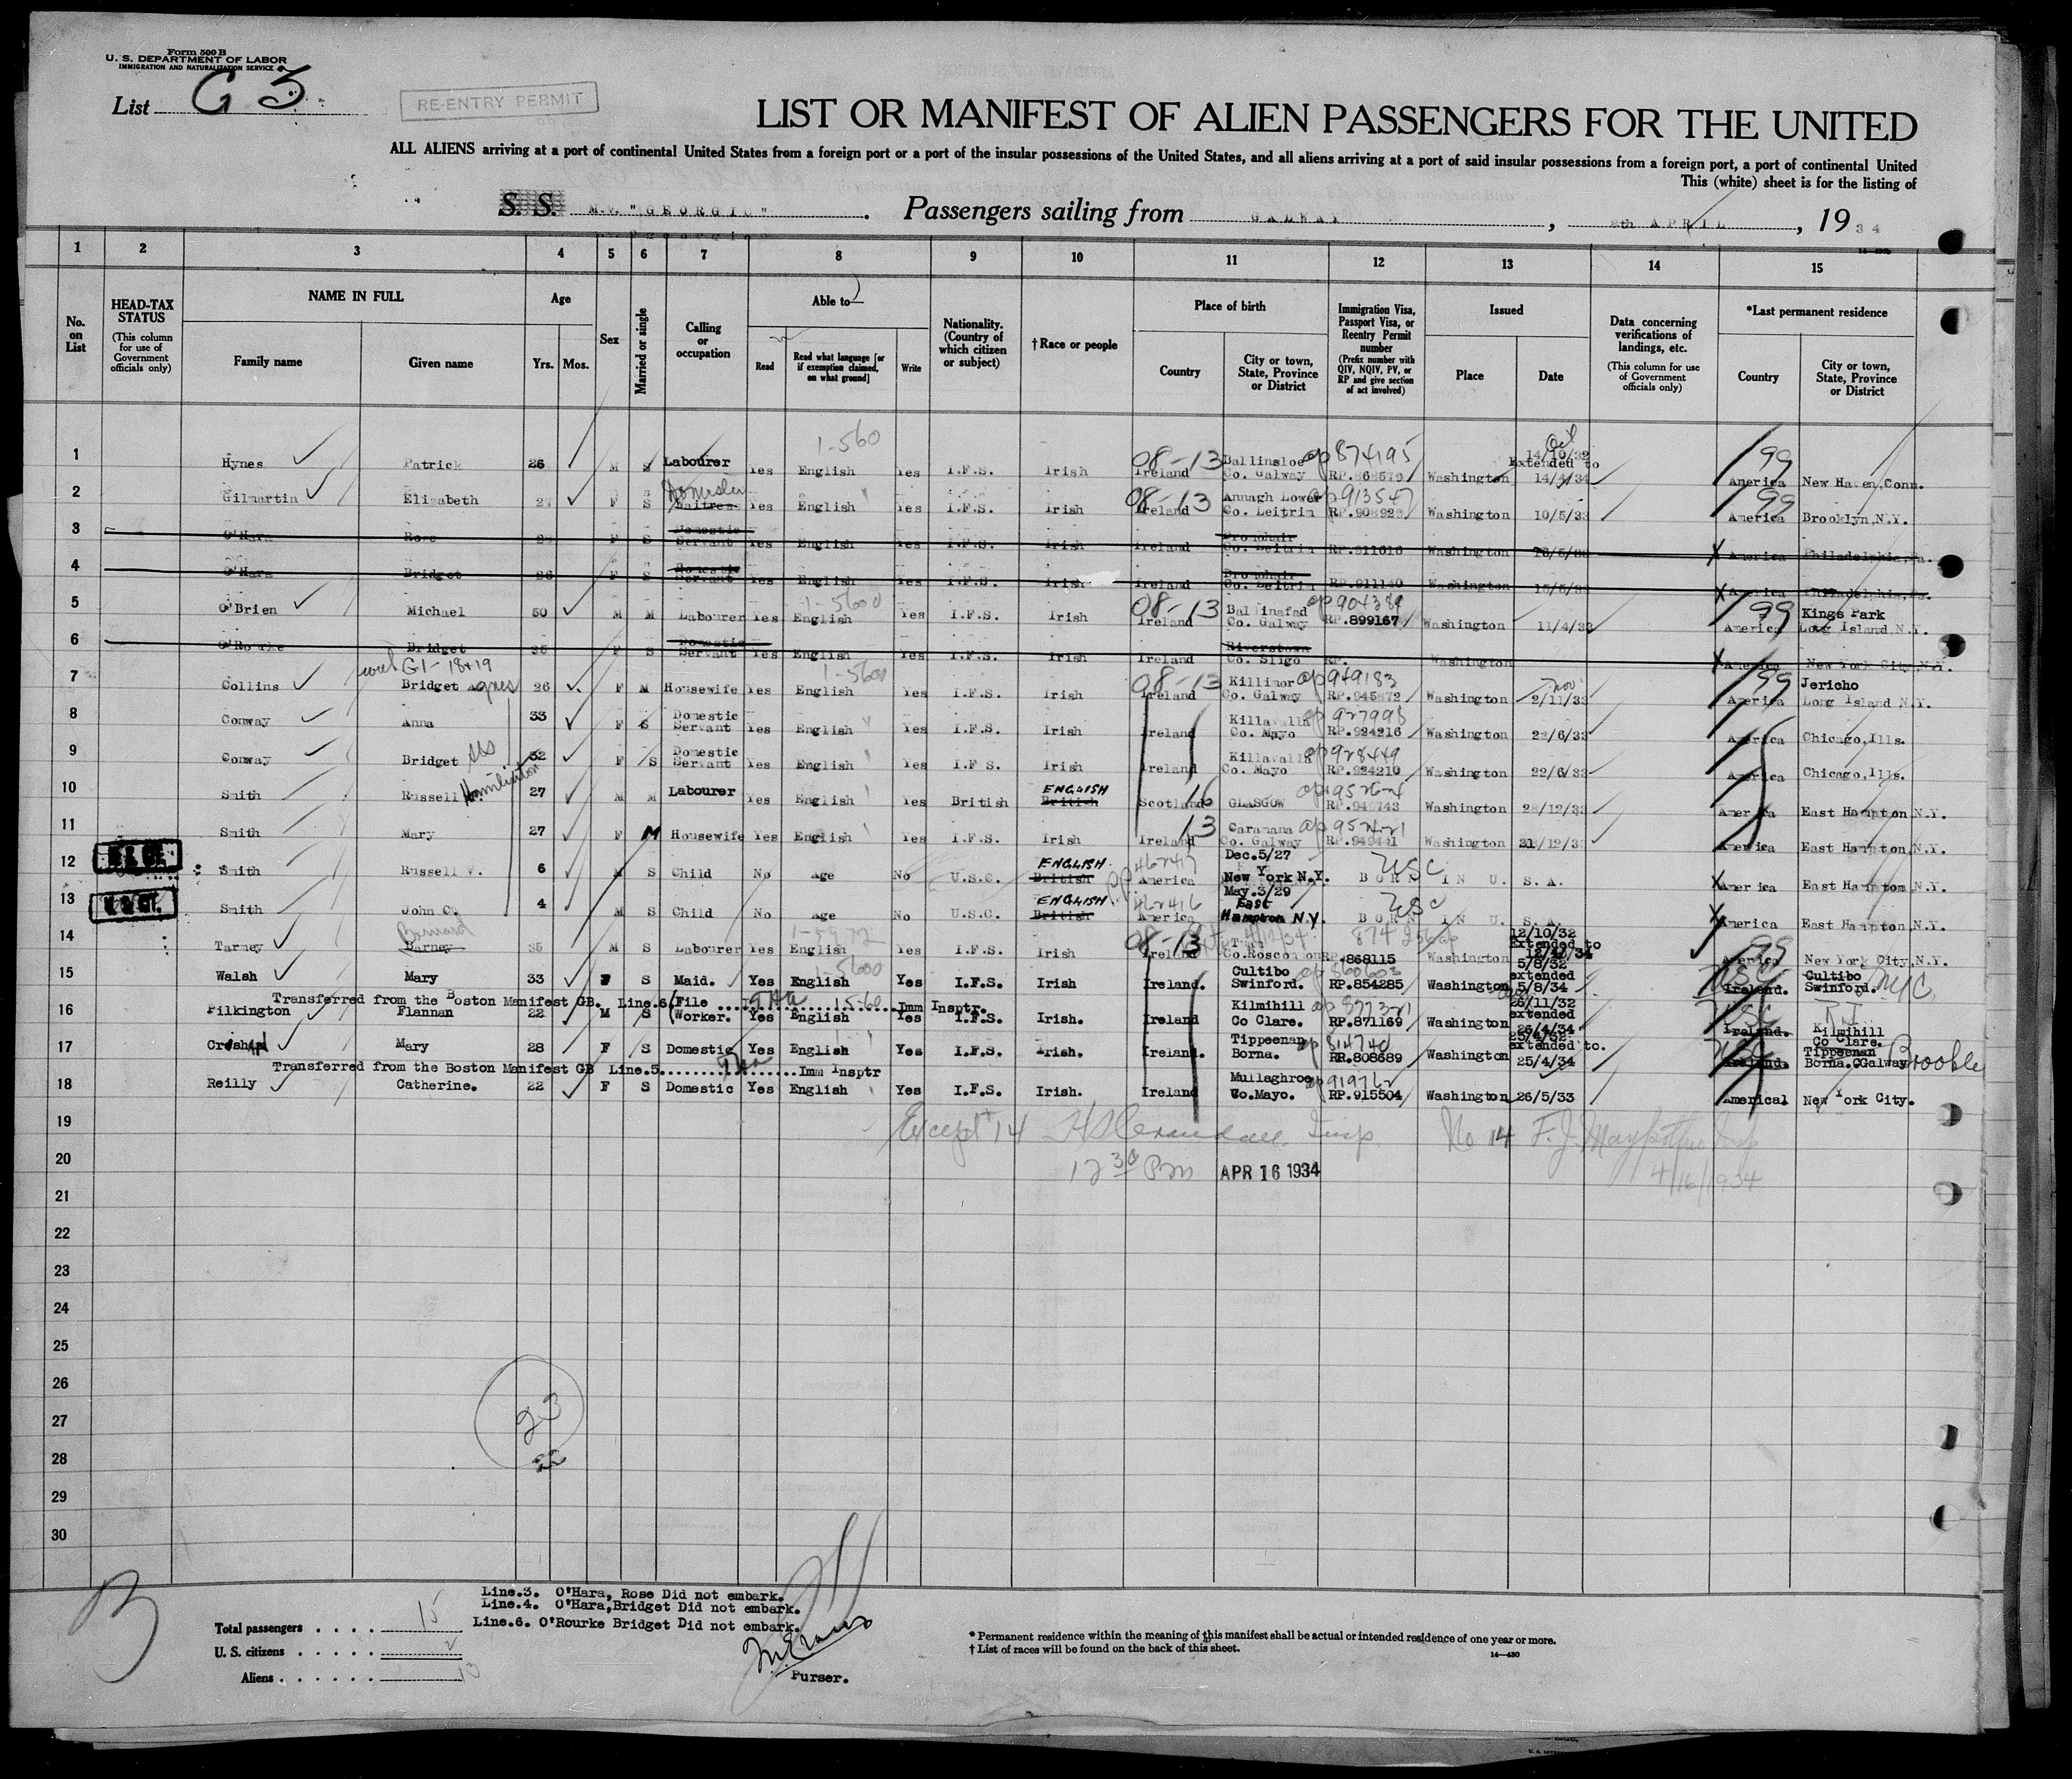 Form 500 B
U. S. DEPARTMENT OF LABOR
IMMIGRATION AND NATURALIZATION SERVICE
List G 3
RE-ENTRY PERMIT
LIST OR MANIFEST OF ALIEN PASSENGERS FOR THE UNITED
ALL ALIENS arriving at a port of continental United States from a foreign port or a port of the insular possessions of the United States, and all aliens arriving at a port of said insular possessions from a foreign port, a port of continental United
This (white) sheet is for the listing of
S. S. M.V. "GEORGIC". Passengers sailing from GALWAY, 8th APRIL, 1934
1 2 3 4 5 6 7 8 9 10 11 12 13 14 15
No. on List
HEAD-TAX STATUS (This column for use of Government officials only)
NAME IN FULL Family name Given name
Age Yrs. Mos.
Sex
Married or single
Calling or occupation
Able to Read Read what language [or if exemption claimed, on what ground] Write
Nationality. (Country of which citizen or subject)
†Race or people
Place of birth Country City or town, State, Province or District
Immigration Visa, Passport Visa, or Reentry Permit number (Prefix number with QIV, NQIV, PV, or RP and give section of act involved)
Issued Place Date
Data concerning verifications of landings, etc. (This column for use of Government officials only)
*Last permanent residence Country City or town, State, Province or District
1 Hynes Patrick 26 M S Labourer Yes English 1-560 Yes I.F.S. Irish 08-13 Ireland Ballinsloe Co. Galway 874195 RP.868579 Washington 14/10/32 Extended to 14/4/34 99 America New Haven, Conn.
2 Gilmartin Elizabeth 27 F S Waitress Yes English Yes I.F.S. Irish 08-13 Ireland Annagh Lower Co. Leitrim 913547 Washington 10/5/33 99 America Brooklyn, N.Y.
3 O'Hara Rose F S Domestic Servant Yes English Yes I.F.S. Irish Ireland Co. Leitrim RP.911616 Washington X America Philadelphia, Pa.
4 O'Hara Bridget 26 F S Domestic Servant Yes English Yes I.F.S. Irish Ireland Co. Leitrim RP.911140 Washington 15/5/33 X America Philadelphia, Pa.
5 O'Brien Michael 50 M M Labourer Yes English 1-5600 Yes I.F.S. Irish 08-13 Ireland Ballinafad Co. Galway 904389 RP.899167 Washington 11/4/33 99 America Kings Park Long Island, N.Y.
6 O'Rourke Bridget 35 F S Domestic Servant Yes English Yes I.F.S. Irish Ireland Riverstown Co. Sligo RP. Washington X America New York City, N.Y.
with G1-18+19
7 Collins Bridget Agnes 26 F M Housewife Yes English 1-5600 Yes I.F.S. Irish 08-13 Ireland Killimor Co. Galway 949183 RP.945872 Washington Nov 2/11/33 99 America Jericho Long Island N.Y.
8 Conway Anna 33 F S Domestic Servant Yes English Yes I.F.S. Irish Ireland Killavalla Co. Mayo 927998 RP.924216 Washington 22/6/33 America Chicago, Ills.
9 Conway Bridget 32 F S Domestic Servant Yes English Yes I.F.S. Irish Ireland Killavalla Co. Mayo 928449 RP.924210 Washington 22/6/33 America Chicago, Ills.
10 Smith Russell Hamilton 27 M M Labourer Yes English Yes British ENGLISH British Scotland 16 GLASGOW RP.949743 Washington 28/12/33 America East Hampton, N.Y.
11 Smith Mary 27 F M Housewife Yes English Yes I.F.S. Irish Ireland 13 Caramana Co. Galway 952421 RP.949441 Washington America East Hampton, N.Y.
12 Smith Russell V. 6 M S Child No Age No U.S.C. ENGLISH British America Dec.5/27 New York N.Y. USC BORN IN U. S. A. X America East Hampton, N.Y.
13 Smith John C. 4 M S Child No Age No U.S.C. ENGLISH British America May.3/29 East Hampton N.Y. USC BORN IN U. S. A. X America East Hampton, N.Y.
14 Tarney Barney Bernard 35 M S Labourer Yes English Yes I.F.S. Irish 08-13 Ireland Co. Roscommon RP.868115 Washington 12/10/32 Extended to 12/4/34 99 America New York City, N.Y.
15 Walsh Mary 33 F S Maid. Yes English 1-5600 Yes I.F.S. Irish Ireland. Cultibo Swinford. 860603 RP.854285 Washington 5/8/32 extended 5/8/34 USC Ireland. Cultibo Swinford. NYC
Transferred from the Boston Manifest GB. Line.6. Imm Insptr.
16 Pilkington Flannan 22 M S (File Worker. Yes English Yes I.F.S. Irish. Ireland Kilmihill Co Clare. RP.871169 Washington 26/11/32 extended 26/4/34 Ireland. Kilmihill Co Clare.
17 Mary 28 F S Domestic Yes English Yes I.F.S. Irish. Ireland. Tippeenan Borna. 814740 RR.808689 Washington 25/4/32 extended to. 25/4/34 Ireland. Tippeenan Borna. CGalway
Transferred from the Boston Manifest GB Line.5. Imm Insptr
18 Reilly Catherine. 22 F S Domestic Yes English Yes I.F.S. Irish. Ireland Mullaghroe Co.Mayo. 919762 RP.915504 Washington 26/5/33 Americal New York City.
19 Except 14 Insp. No 14
20 12 30 Pm APR 16 1934 4/16/1934
21
22
23
24
25
26
27 23
28
29
30
Line.3. O'Hara, Rose Did not embark.
Line.4. O'Hara,Bridget Did not embark.
Line.6. O'Rourke Bridget Did not embark.
Total passengers . . . . 15
U. S. citizens . . . . . 2
Aliens . . . . . . 13
Purser.
* Permanent residence within the meaning of this manifest shall be actual or intended residence of one year or more.
† List of races will be found on the back of this sheet.
14—430